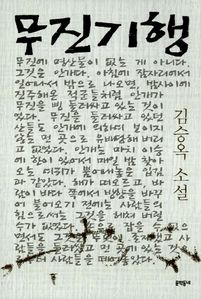 무진기행
김승옥 소설
무진에 명산물이 없는 게 아니다.
그것은 안개다. 아침에 잠자리에서
일어나서 밖으로 나오면, 밤사이에
진주해온 적군들처럼 안개가
무진을 삥 둘러싸고 있는 것이
었다. 무진을 둘러싸고 있던
산들도 안개에 의하여 보이지
않는 먼 곳으로 유배당해버리
고 없었다. 안개는 마치 이승
에 한이 있어서 매일 밤 찾아
오는 여귀가 뿜어내놓은 입김
과 같았다. 해가 떠오르고, 바
람이 바다 쪽에서 방향을 바꾸
어 불어오기 전에는 사람들의
힘으로써는 그것을 헤쳐 버릴
수가 없었다.
문학동네